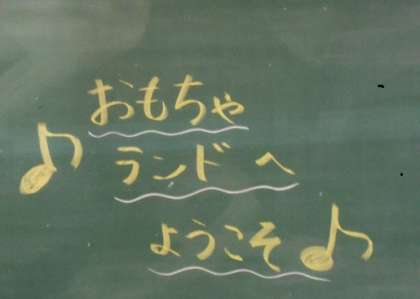 おもちゃ
ランドへ
ようこそ